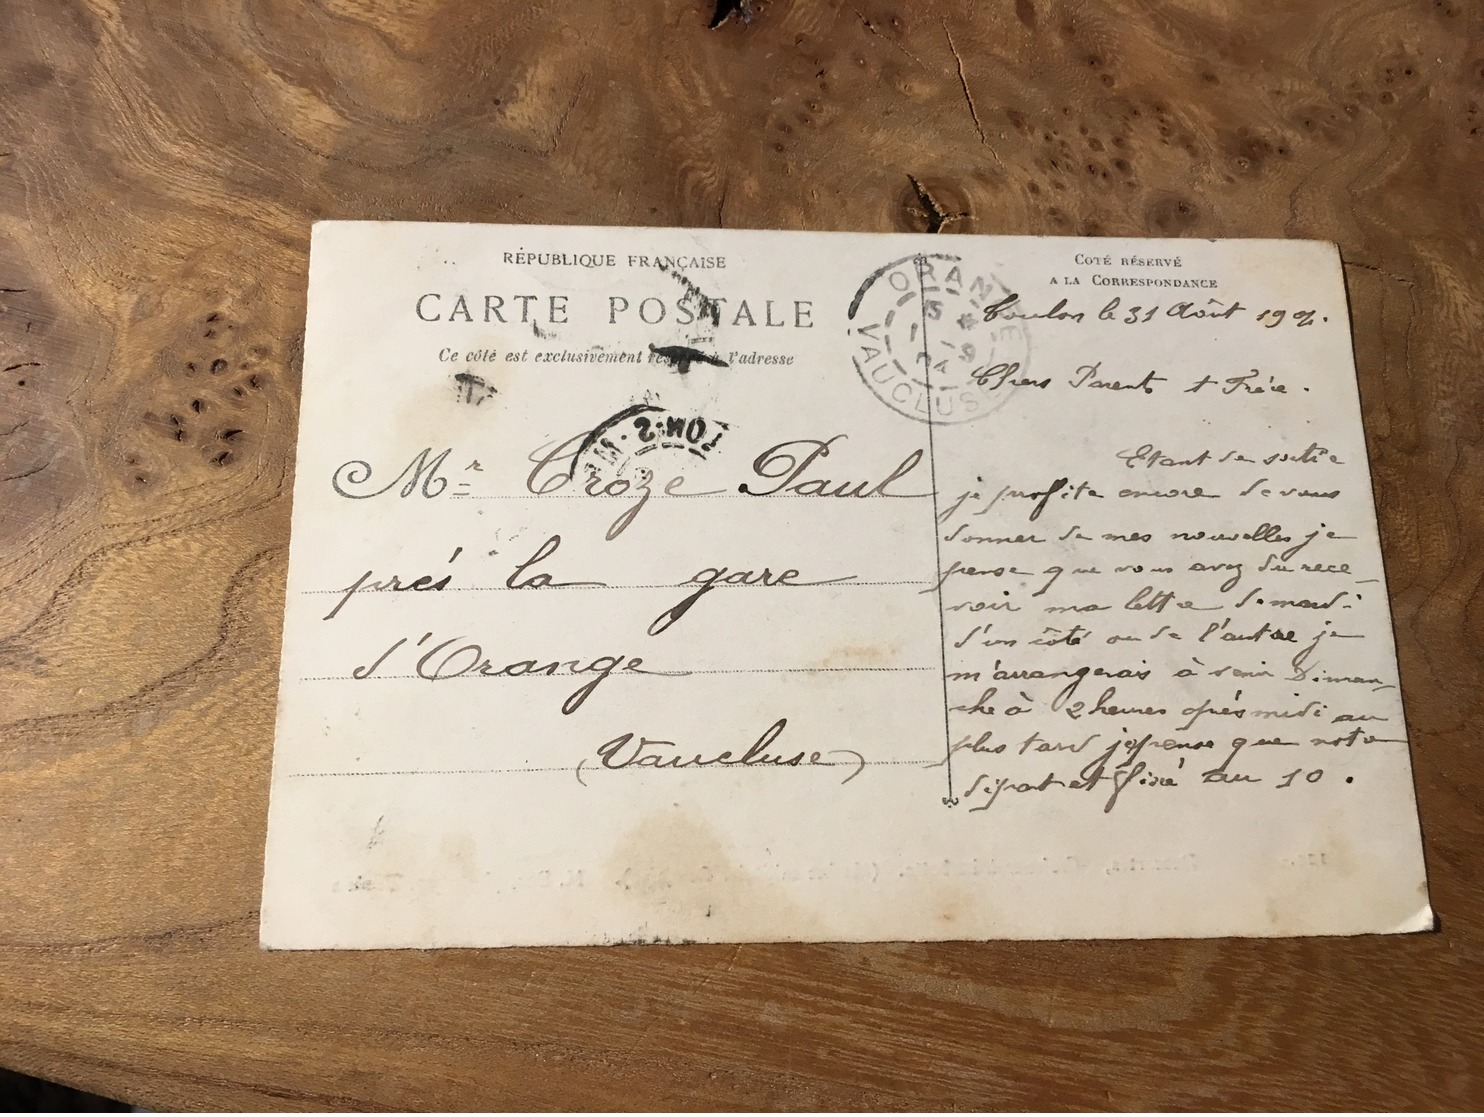 RÉPUBLIQUE FRANÇAISE
CARTE POSTALE
Ce côté est exclusivement réservé à l'adresse
Mr Croze Paul
près la gare
d'Orange
(Vaucluse)
ORANGE
VAUCLUSE
COTÉ RÉSERVÉ
A LA CORRESPONDANCE
Toulon le 31 Août
Chers Parents + Frère.
Etant de sortie
je profite encore de vous
donner de mes nouvelles je
pense que vous avez du rece-
voir ma lettre
d'un côté ou de l'autre je
m'arrangerais à venir Diman-
che à 2 heures après midi au
plus tard je pense que notre
départ et fixé au 10.